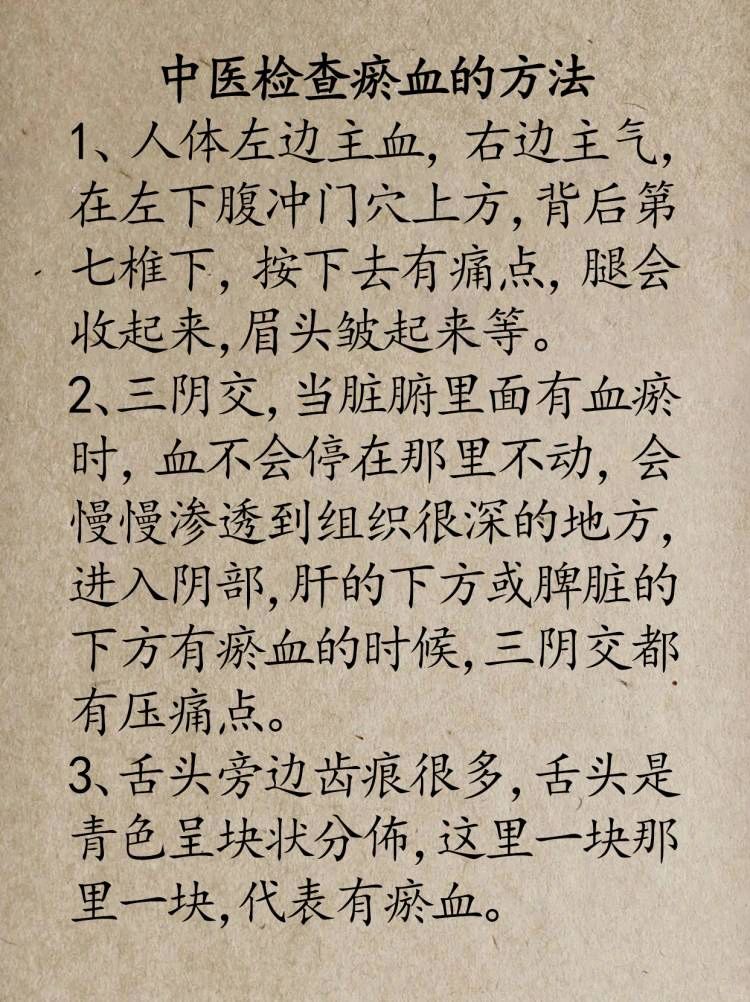 中医检查瘀血的方法
1、人体左边主血，右边主气，
在左下腹冲门穴上方，背后第
七椎下，按下去有痛点，腿会
收起来，眉头皱起来等。
2、三阴交，当脏腑里面有血瘀
时，血不会停在那里不动，会
慢慢渗透到组织很深的地方，
进入阴部，肝的下方或脾脏的
下方有瘀血的时候，三阴交都
有压痛点。
3、舌头旁边齿痕很多，舌头是
青色呈块状分佈，这里一块那
里一块，代表有瘀血。